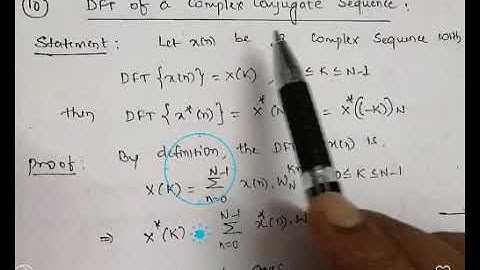 (10) DFT of a Complex Conjugate Sequence.
Statement: Let x(n) be Complex Sequence with
DFT {x(n)} = X(K) ≤ K ≤ N-1
then DFT {x*(n)} = X*(N = X*((-K))N
Proof: By definition, the DF x(n) is.
X(K) = Σ x(n). W_N^Kn 0 ≤ K ≤ N-1
N-1
n=0
⇒ X*(K) Σ x*(n). W
N-1
n=0